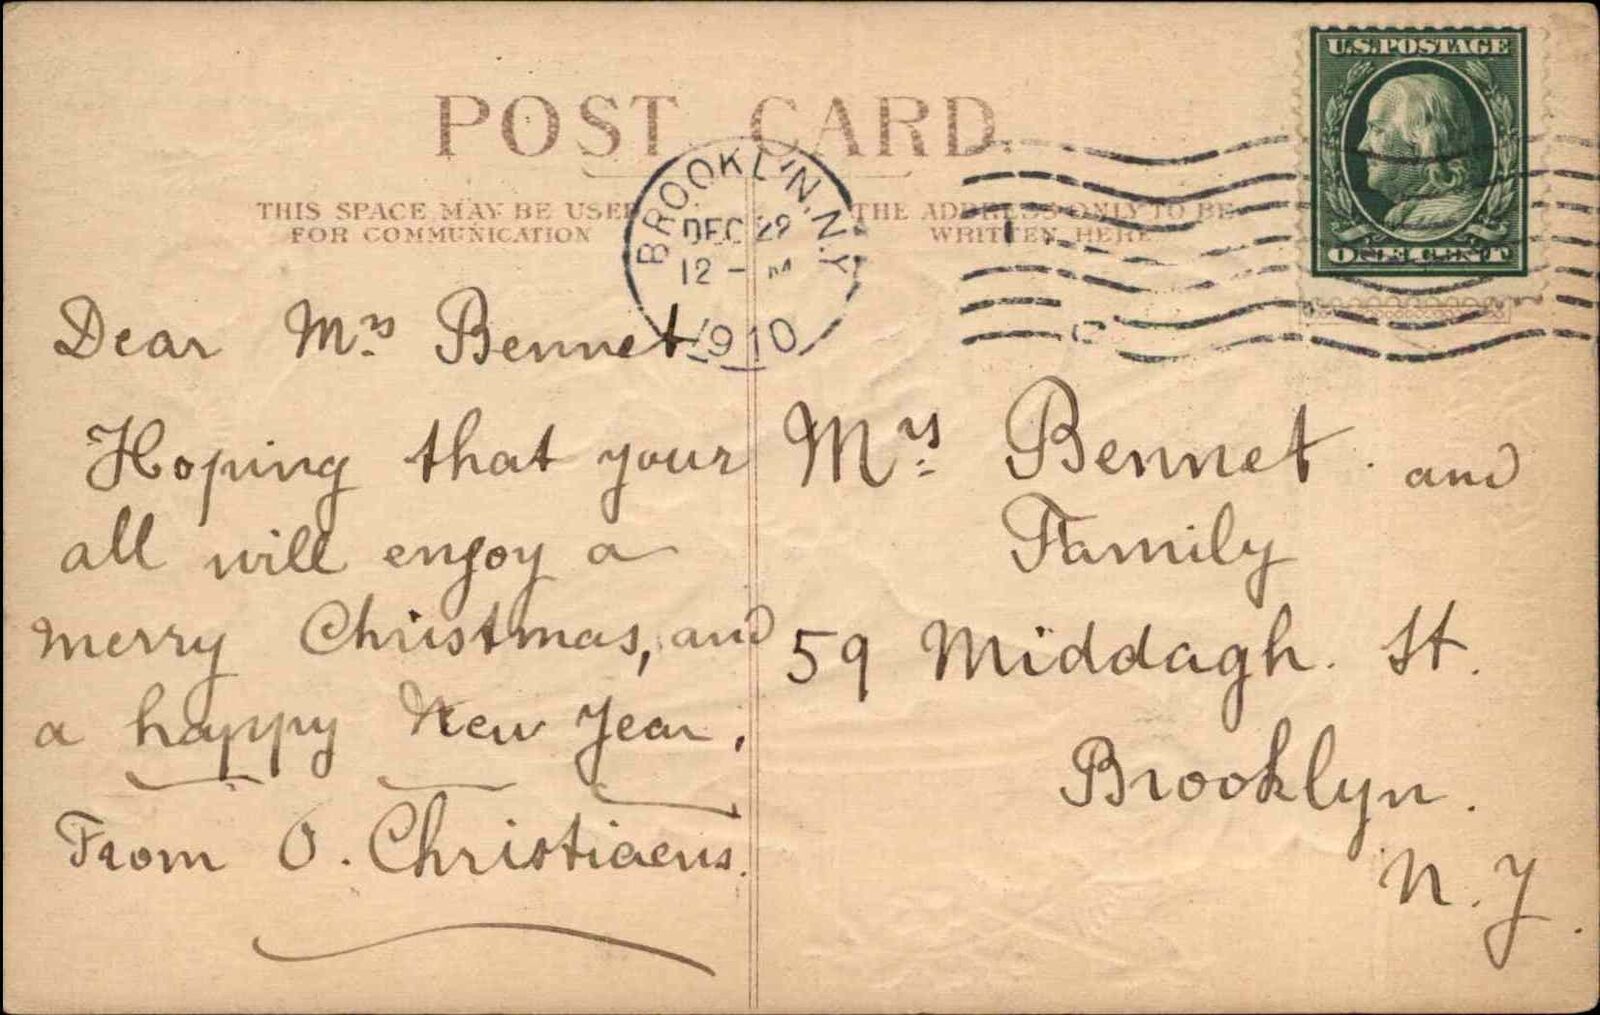 U.S. POSTAGE
ONE CENT
POST CARD.
THIS SPACE MAY BE USED
FOR COMMUNICATION
THE ADDRESS ONLY TO BE
WRITTEN HERE
BROOKLYN, N.Y.
DEC 22
12 - M
1910
Dear Mrs Bennet
Hoping that your
all will enjoy a
merry Christmas, and
a happy New Year,
From O. Christiaens.
Mrs Bennet and
Family
59 Middagh. St.
Brooklyn.
N. Y.